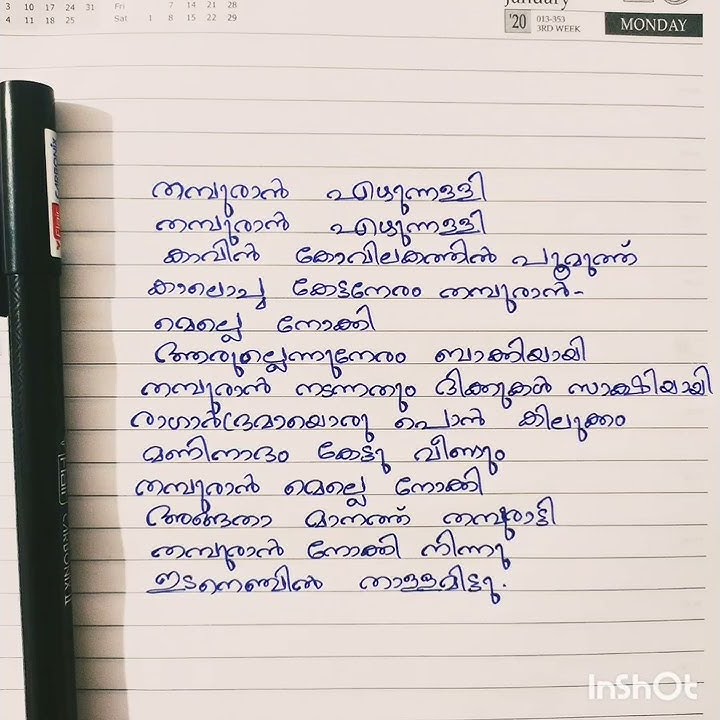 3 10 17 24 31 Fri 7 14 21 28
4 11 18 25 Sat 1 8 15 22 29
January
'20 013-353
3RD WEEK
MONDAY
തമ്പുരാൻ എഴുന്നള്ളി
തമ്പുരാൻ എഴുന്നള്ളി
കാവിൻ കോവിലകത്തിൻ പൂമുത്ത്
കാലൊച്ച കേട്ടനേരം തമ്പുരാൻ-
മെല്ലെ നോക്കി
ആരുമല്ലെന്നുനേരം ബാക്കിയായി
തമ്പുരാൻ നടന്നതും ദിക്കുകൾ സാക്ഷിയായി
രാഗാർദ്രമായൊരു പൊൻ കിലുക്കം
മണിനാദം കേട്ടു വീണ്ടും
തമ്പുരാൻ മെല്ലെ നോക്കി
അങ്ങതാ മാനത്ത് തമ്പുരാട്ടി
തമ്പുരാൻ നോക്കി നിന്നു
ഇടനെഞ്ചിൽ താളമിട്ടു.
InShOt